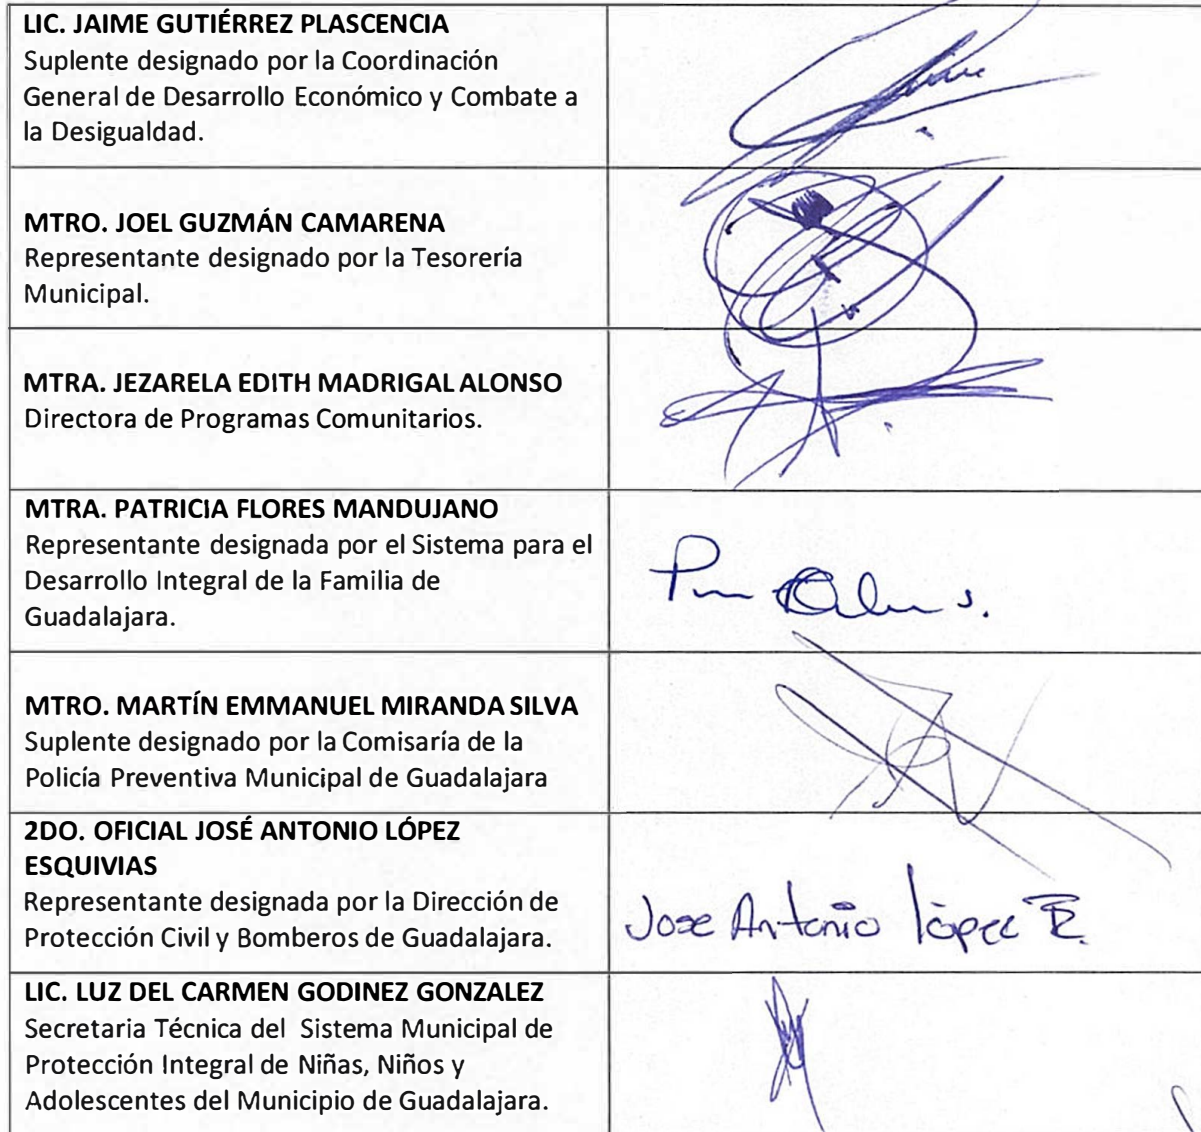 LIC. JAIME GUTIÉRREZ PLASCENCIA
Suplente designado por la Coordinación
General de Desarrollo Económico y Combate a
la Desigualdad.
MTRO. JOEL GUZMÁN CAMARENA
Representante designado por la Tesorería
Municipal.
MTRA. JEZARELA EDITH MADRIGAL ALONSO
Directora de Programas Comunitarios.
MTRA. PATRICIA FLORES MANDUJANO
Representante designada por el Sistema para el
Desarrollo Integral de la Familia de
Guadalajara.
MTRO. MARTÍN EMMANUEL MIRANDA SILVA
Suplente designado por la Comisaría de la
Policía Preventiva Municipal de Guadalajara
2DO. OFICIAL JOSÉ ANTONIO LÓPEZ
ESQUIVIAS
Representante designada por la Dirección de
Protección Civil y Bomberos de Guadalajara.
Jose Antonio lópez E.
LIC. LUZ DEL CARMEN GODINEZ GONZALEZ
Secretaria Técnica del Sistema Municipal de
Protección Integral de Niñas, Niños y
Adolescentes del Municipio de Guadalajara.